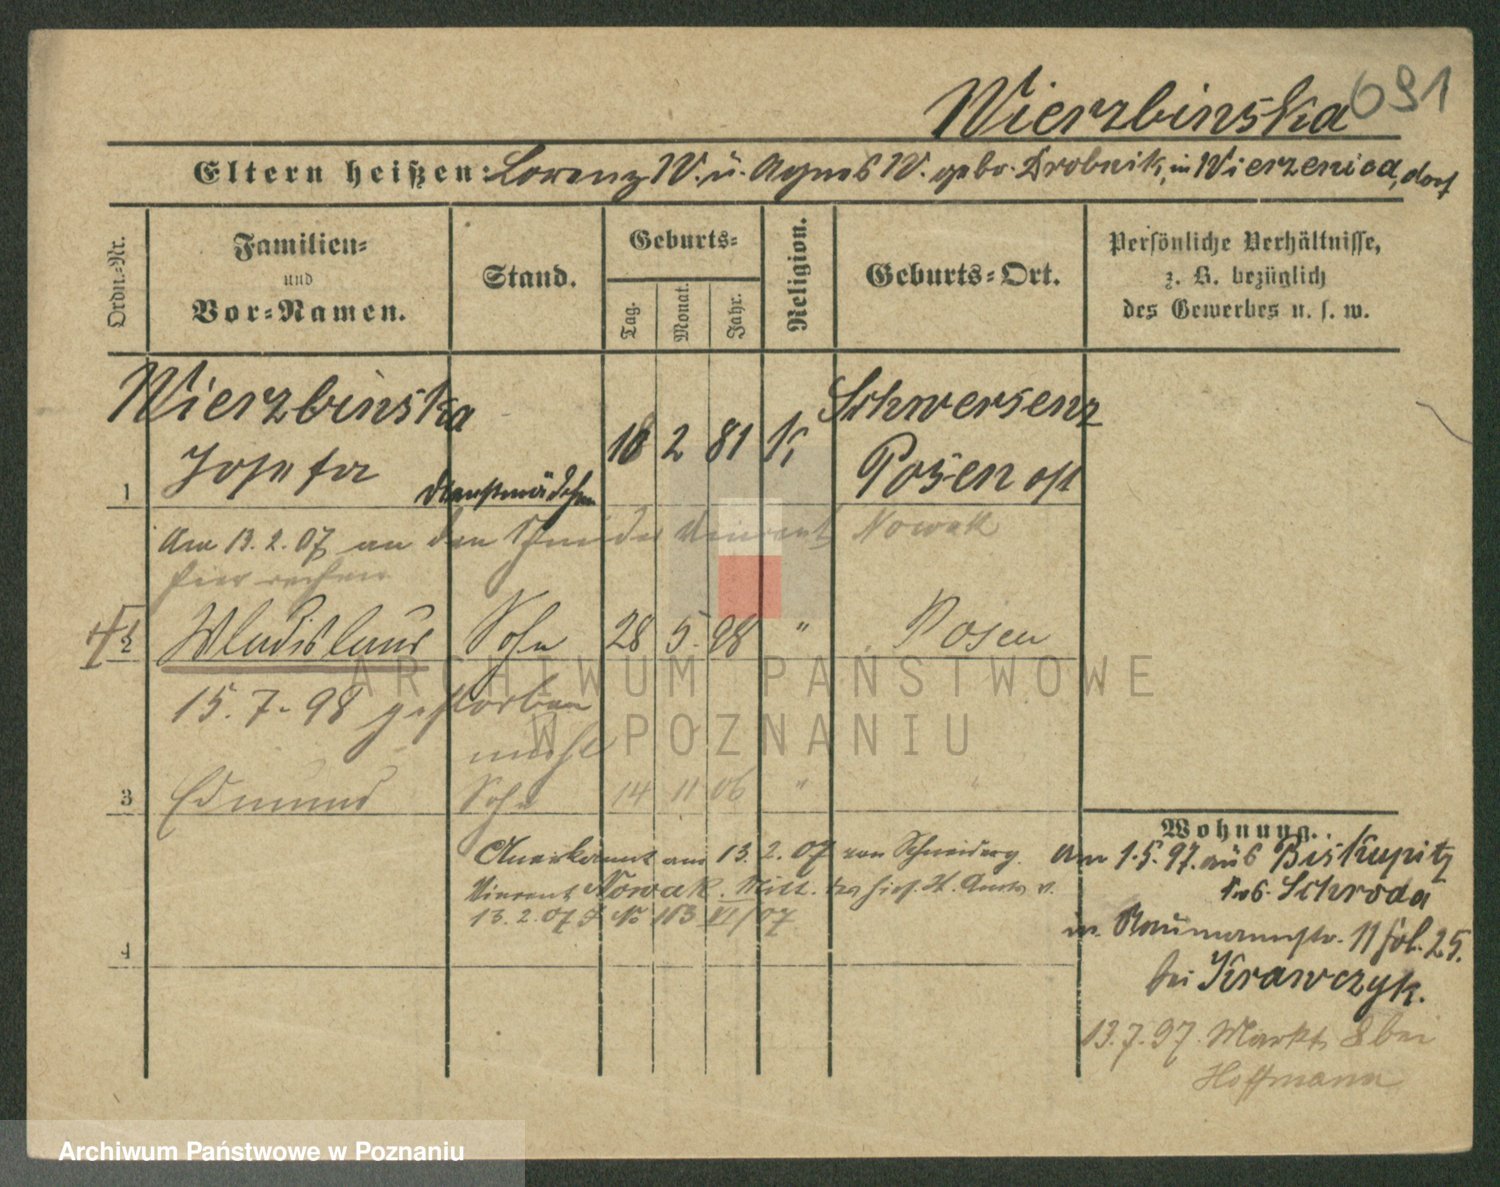 Wierzbinska 691
Eltern heißen: Lorenz W. u. Agnes W. gebr. Drobnik, in Wierzenica, dorf
Ordn.-Nr.
Familien-
und
Vor-Namen.
Stand.
Geburts-
Tag.
Monat.
Jahr.
Religion.
Geburts-Ort.
Persönliche Verhältnisse,
z. B. bezüglich
des Gewerbes u. s. w.
Wierzbinska Schwersenz
Josefa 18 2 81 K Posen ost
1 Dienstmädchen
Am 13. 2. 07 an den Schneider Vincent Nowak
hier
2 Wladislaus Sohn 28 5. 98 " Posen
15. 7. 98 gestorben
3 Edmund Sohn 14 11 06 " "
Anerkannt am 13. 2. 07 von Schneiderg.
Vincent Nowak. Mitt. des hies. St. Amts v.
13. 2. 07 No 163 VI/07
4
Wohnung.
am 1. 5. 97. aus Biskupitz
Krs. Schroda
in Naumannstr. 11 fol. 25.
bei Krawczyk.
13. 7. 97. Markt 8 bei
Hoffmann
ARCHIWUM PAŃSTWOWE
W POZNANIU
Archiwum Państwowe w Poznaniu